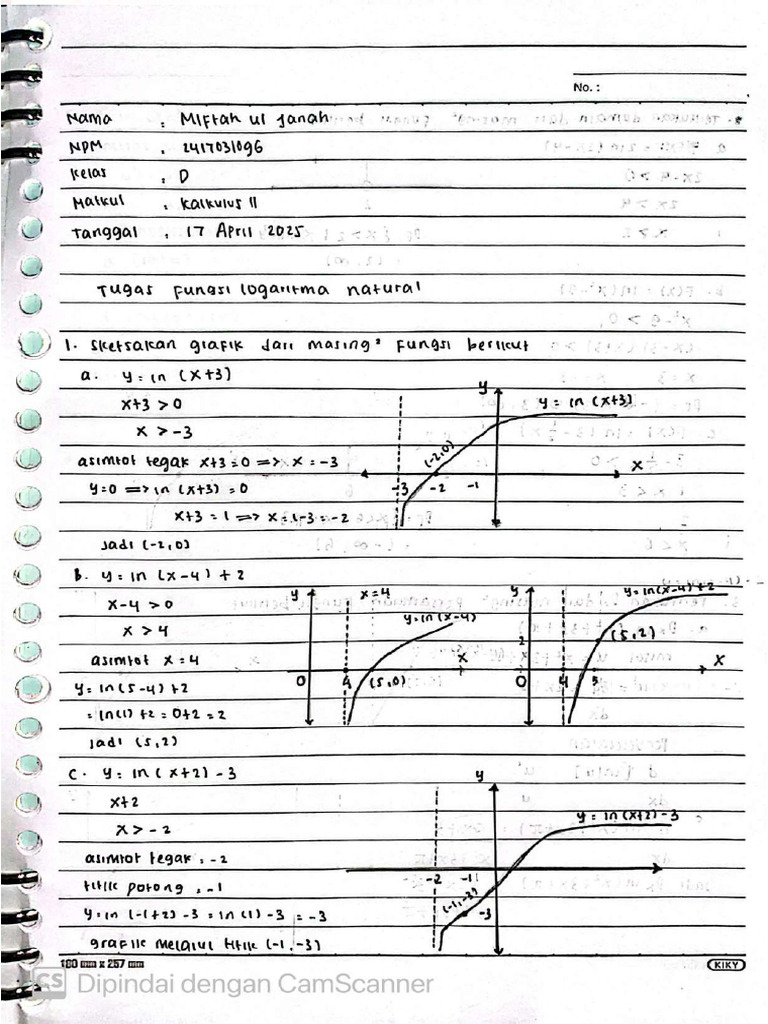 No. :
Nama : Miftah ul Janah
NPM : 2417031096
Kelas : D
Matkul : Kalkulus II
Tanggal : 17 April 2025
Tugas Fungsi logaritma natural
1. Sketsakan grafik dari masing² fungsi berikut
a. y = ln (x+3)
x+3 > 0
x > -3
asimtot tegak x+3 = 0 => x = -3
y=0 => ln (x+3) = 0
x+3 = 1 => x = 1-3 = -2
Jadi (-2,0)
y
y = ln (x+3)
(-2,0)
x
-3 -2 -1
b. y = ln (x-4) + 2
x-4 > 0
x > 4
asimtot x = 4
y = ln (5-4) + 2
= ln(1) + 2 = 0+2 = 2
Jadi (5,2)
y x=4
y = ln (x-4)
x
0 4 (5,0)
y
y = ln(x-4) + 2
2
(5,2)
x
0 4 5
c. y = ln (x+2) - 3
x+2
x > -2
asimtot tegak : -2
titik potong : -1
y = ln (-1+2) - 3 = ln (1) - 3 = -3
grafik melalui titik (-1,-3)
y
y = ln (x+2) - 3
-2 -1
(-1,-3)
-3
180 mm x 257 mm
KIKY
CS Dipindai dengan CamScanner